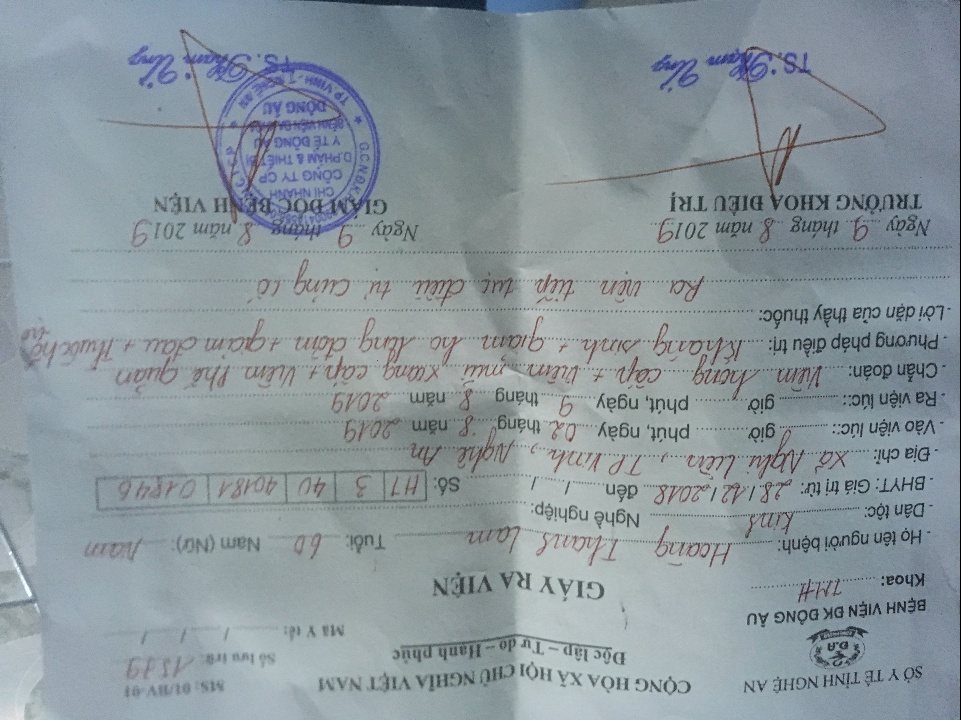 SỞ Y TẾ TỈNH NGHỆ AN
Đ.A
BỆNH VIỆN ĐK ĐÔNG ÂU
Khoa: TMH
CỘNG HÒA XÃ HỘI CHỦ NGHĨA VIỆT NAM
Độc lập – Tự do – Hạnh phúc
MS: 01/BV-01
Số lưu trữ: 1519
Mã Y tế: / / /
GIẤY RA VIỆN
- Họ tên người bệnh: Hoàng Thanh Lam Tuổi: 60 Nam (Nữ): Nam
- Dân tộc: Kinh Nghề nghiệp:
- BHYT: Giá trị từ: 28/12/2018 đến / / Số: HT 3 40 40181 01846
- Địa chỉ: Xã Nghi Liên, TP Vinh, Nghệ An
- Vào viện lúc:: giờ phút, ngày 02 tháng 8 năm 2019
- Ra viện lúc:: giờ phút, ngày 9 tháng 8 năm 2019
- Chẩn đoán: Viêm họng cấp + Viêm mũi xoang cấp + Viêm Phế quản
- Phương pháp điều trị: Kháng sinh + giảm ho long đờm + giảm đau + Thuốc hỗ trợ
- Lời dặn của thầy thuốc:
Ra viện tiếp tục điều trị củng cố
Ngày 9 tháng 8 năm 2019
TRƯỞNG KHOA ĐIỀU TRỊ
TS: Phạm Ứng
Ngày 9 tháng 8 năm 2019
GIÁM ĐỐC BỆNH VIỆN
CHI NHÁNH
CÔNG TY CP
D.PHẨM & THIẾT BỊ
Y TẾ ĐÔNG ÂU
BỆNH VIỆN ĐA KHOA
ĐÔNG ÂU
TP VINH - T NGHỆ AN
TS: Phạm Ứng